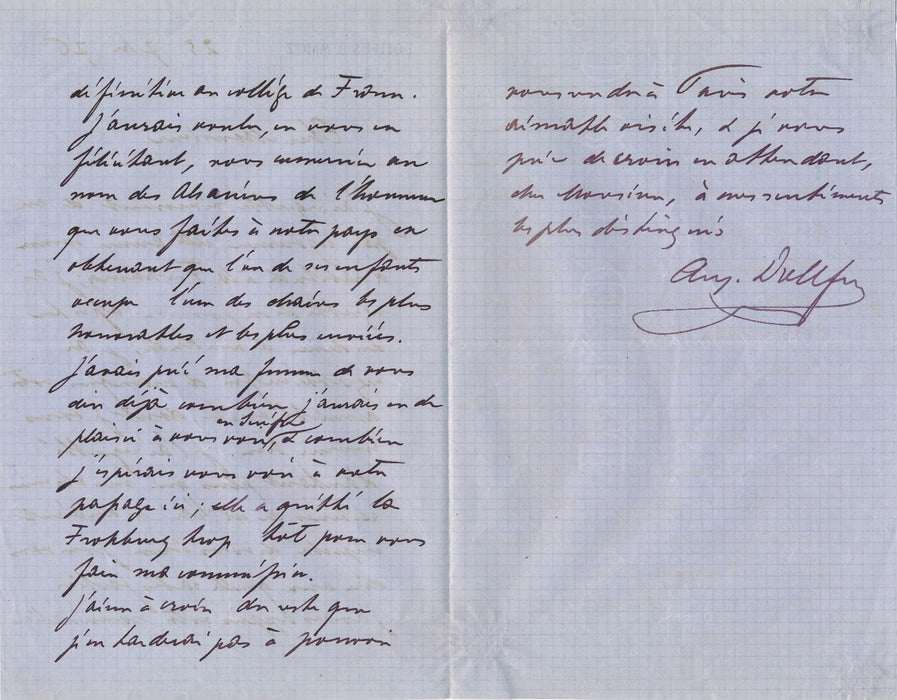 définitive au collége de France.
J'aurais voulu, en vous en
félicitant, vous remercier au
nom des Alsaciens de l'honneur
que vous faites à notre pays en
obtenant que l'un de ses enfants
occupe l'une des chaires les plus
honorables et les plus enviées.
J'avais prié ma femme de vous
dire déjà combien j'aurais eu de
plaisir à vous voir en Suisse, & combien
j'espérais vous voir à votre
passage ici ; elle a quitté la
Frohburg trop tôt pour vous
faire ma commission.
J'aime à croire du reste que
je ne tarderai pas à pouvoir
vous rendre à Paris votre
aimable visite, & je vous
prie de croire en attendant,
cher Monsieur, à mes sentiments
les plus distingués
Aug. Dollfus